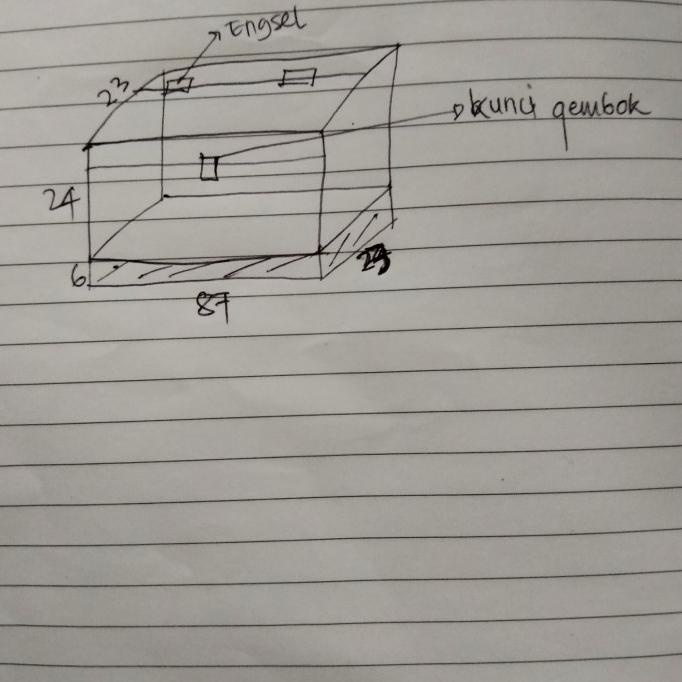 Engsel
23
kunci gembok
24
6
87